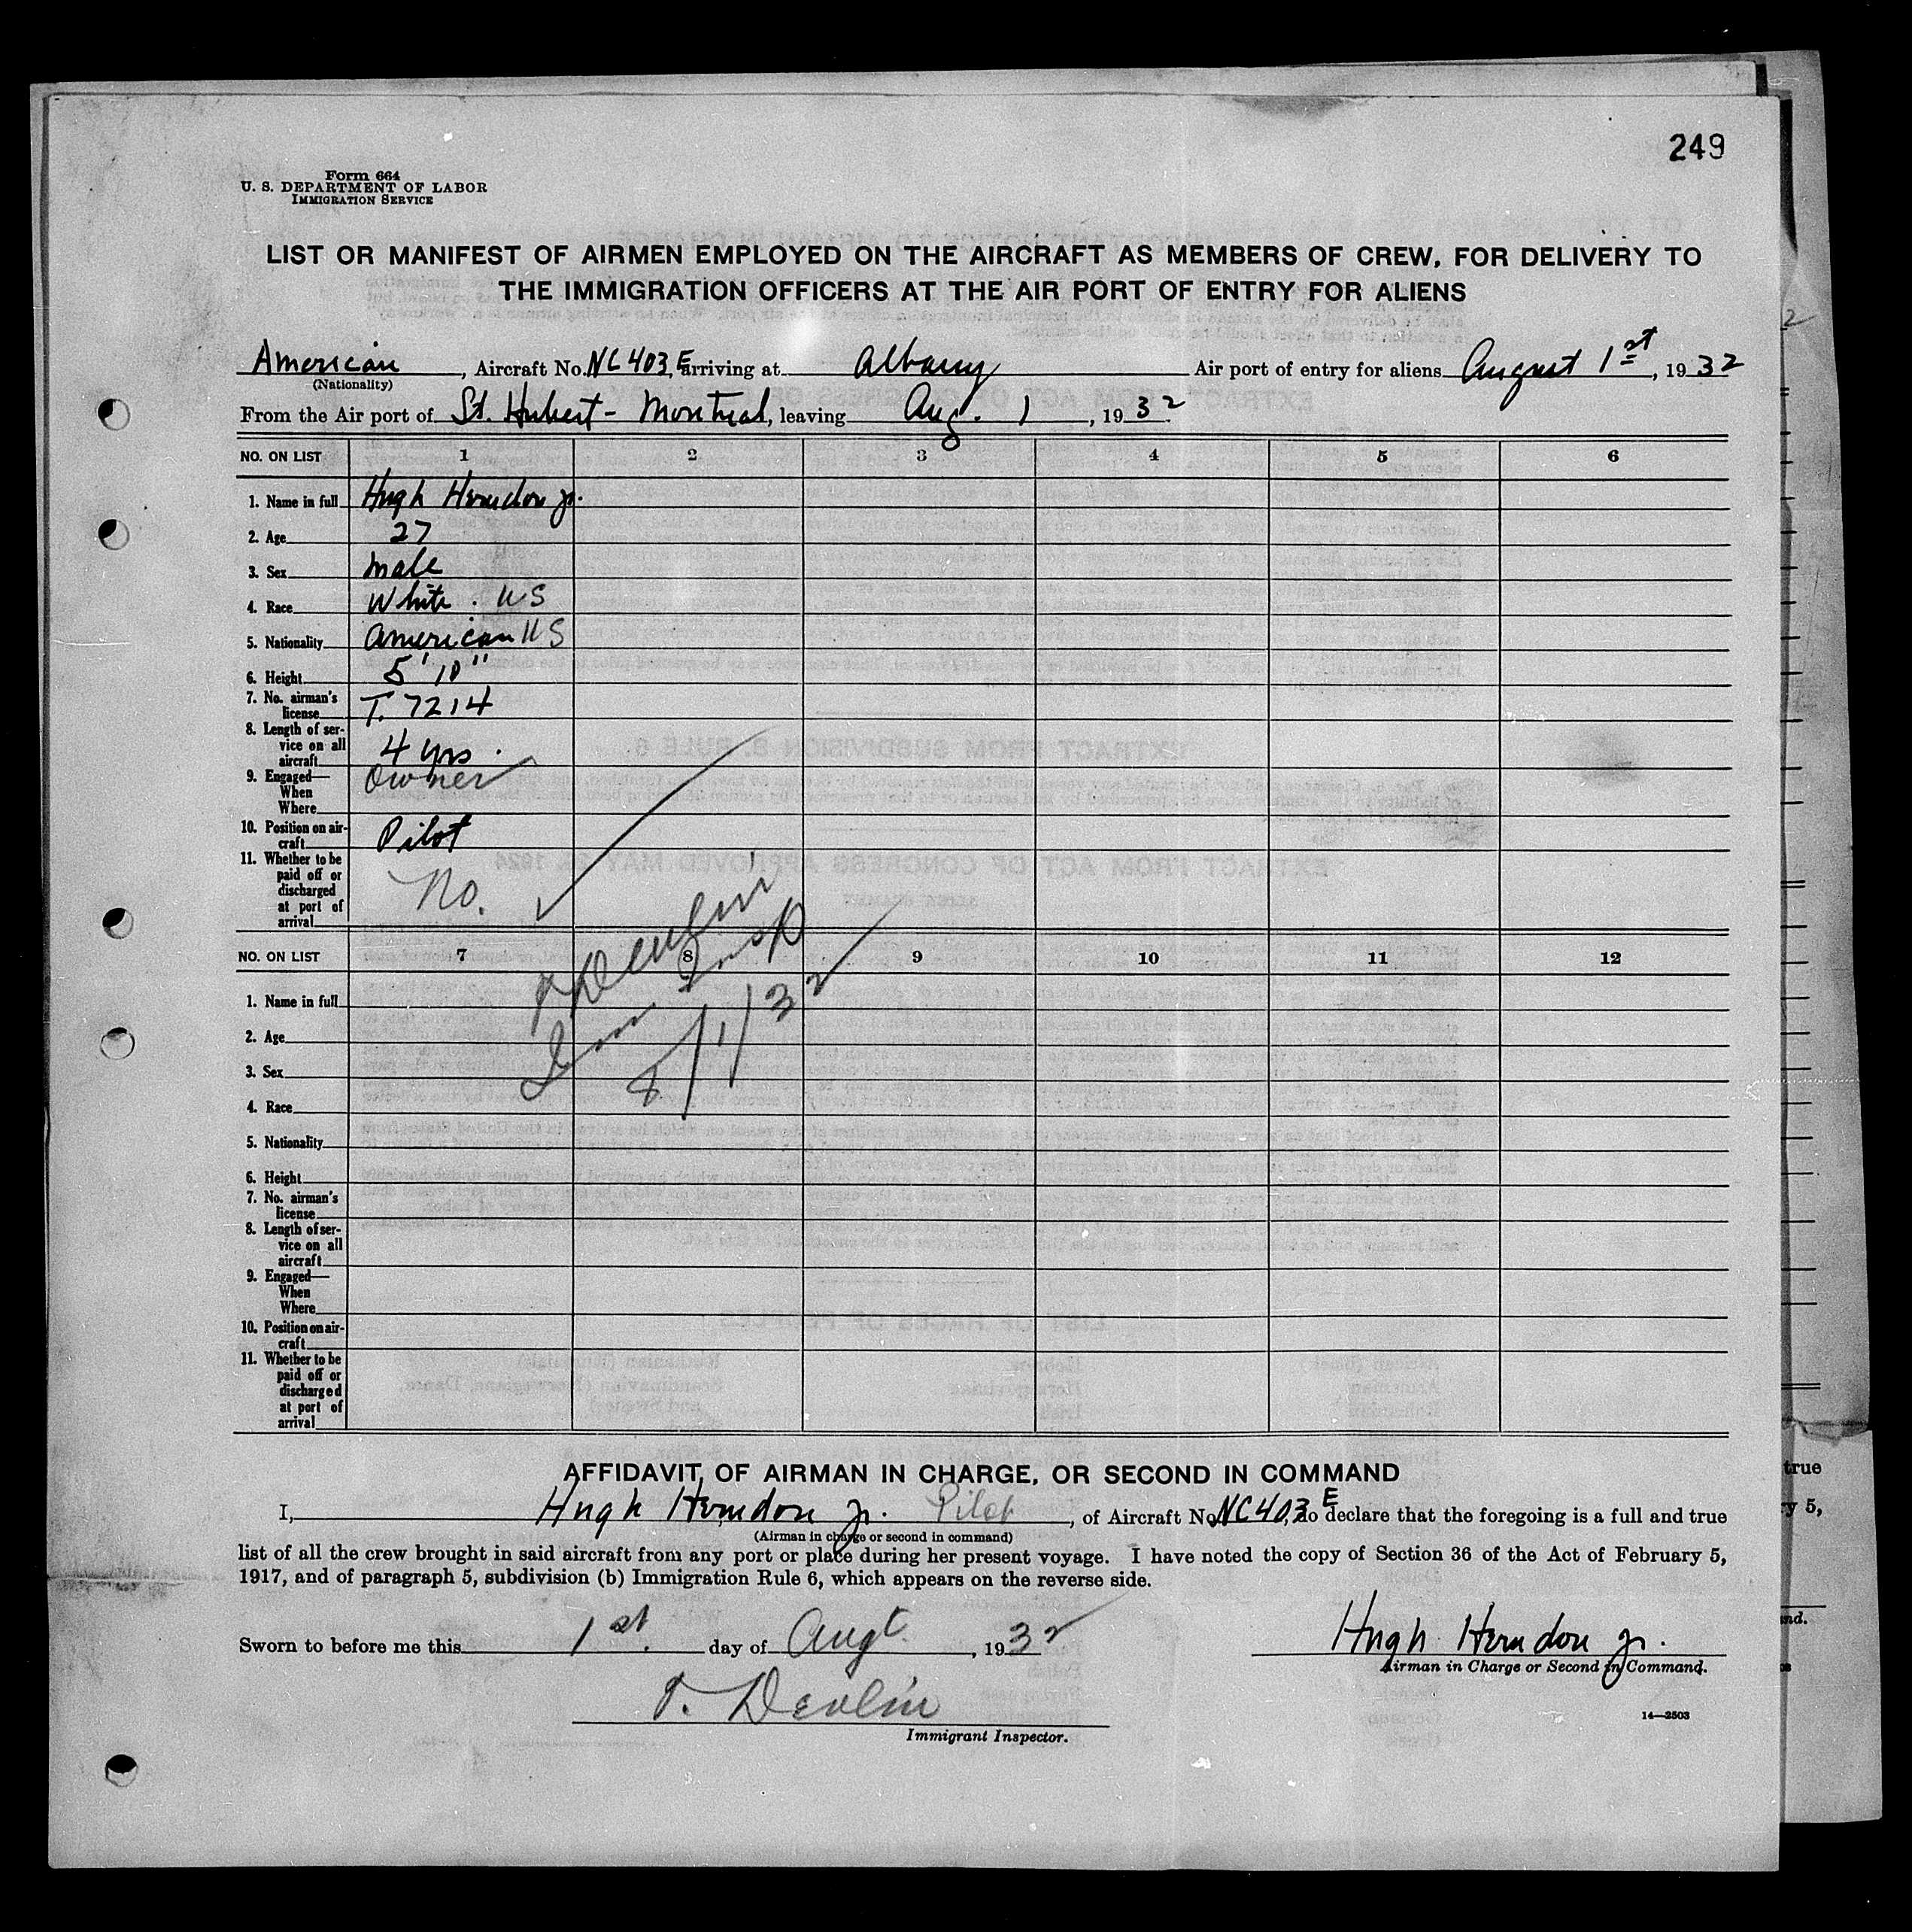 249
Form 664
U. S. DEPARTMENT OF LABOR
IMMIGRATION SERVICE
LIST OR MANIFEST OF AIRMEN EMPLOYED ON THE AIRCRAFT AS MEMBERS OF CREW, FOR DELIVERY TO
THE IMMIGRATION OFFICERS AT THE AIR PORT OF ENTRY FOR ALIENS
American, Aircraft No. NC403E, arriving at Albany Air port of entry for aliens August 1st, 1932
(Nationality)
From the Air port of St. Hubert - Montreal, leaving Aug. 1, 1932
NO. ON LIST 1 2 3 4 5 6
1. Name in full Hugh Herndon Jr.
2. Age 27
3. Sex male
4. Race White. US
5. Nationality American US
6. Height 5' 10"
7. No. airman's
license T. 7214
8. Length of ser-
vice on all
aircraft 4 yrs.
9. Engaged— Owner
When
Where
10. Position on air-
craft Pilot
11. Whether to be
paid off or
discharged
at port of
arrival No.
T Devlin
Imm Insp
8/1/32
NO. ON LIST 7 8 9 10 11 12
1. Name in full
2. Age
3. Sex
4. Race
5. Nationality
6. Height
7. No. airman's
license
8. Length of ser-
vice on all
aircraft
9. Engaged—
When
Where
10. Position on air-
craft
11. Whether to be
paid off or
discharged
at port of
arrival
AFFIDAVIT OF AIRMAN IN CHARGE, OR SECOND IN COMMAND
I, Hugh Herndon Jr. Pilot, of Aircraft No. NC403E, do declare that the foregoing is a full and true
(Airman in charge or second in command)
list of all the crew brought in said aircraft from any port or place during her present voyage. I have noted the copy of Section 36 of the Act of February 5,
1917, and of paragraph 5, subdivision (b) Immigration Rule 6, which appears on the reverse side.
Sworn to before me this 1st. day of Augt., 1932
Hugh Herndon Jr.
Airman in Charge or Second in Command.
T. Devlin
Immigrant Inspector.
14—2503